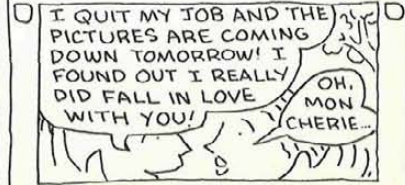 I QUIT MY JOB AND THE
PICTURES ARE COMING
DOWN TOMORROW! I
FOUND OUT I REALLY
DID FALL IN LOVE
WITH YOU!
OH,
MON
CHERIE...